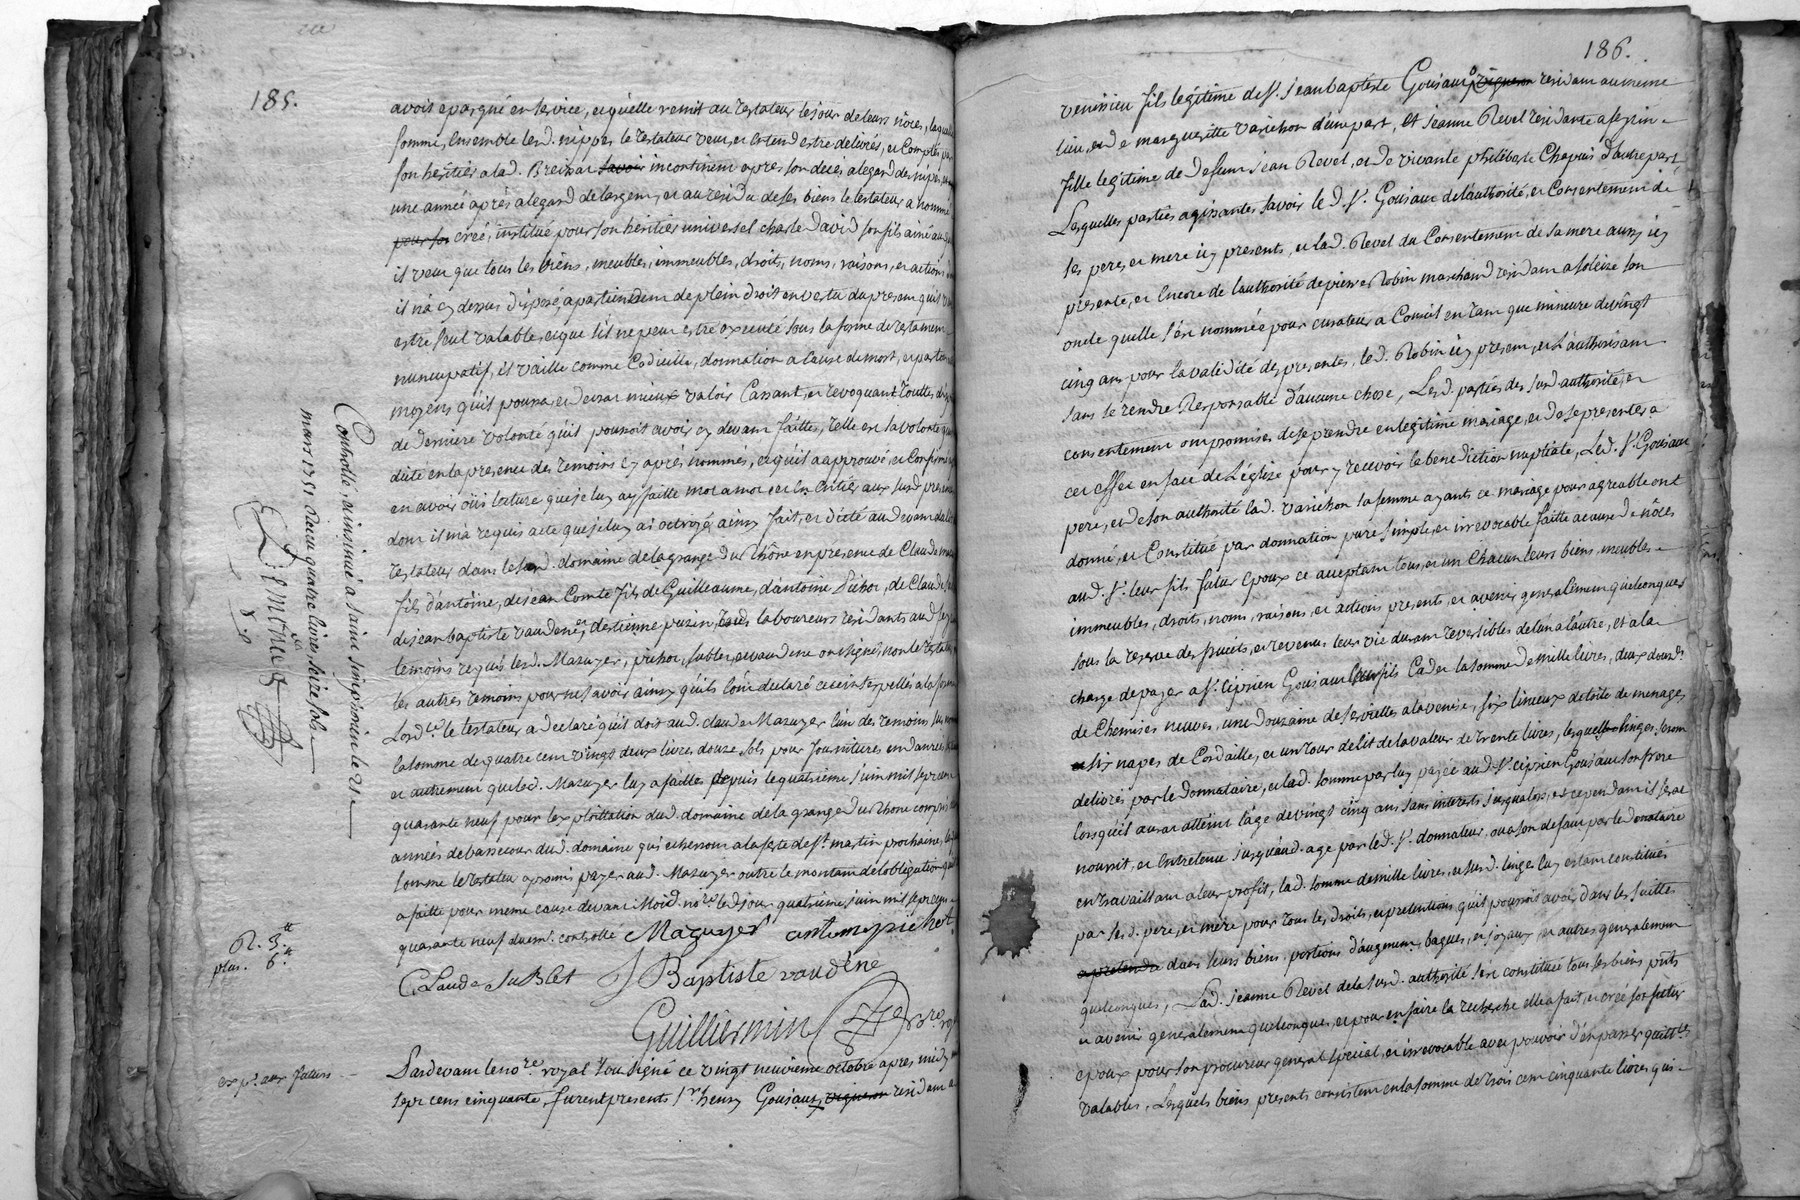 185.
avoit epargné en service, et qu'elle remit au testateur le jour de leurs nôces, laquelle
somme, ensemble lesd. nippes le testateur veut, et entend estre delivrés, et comptés par
son héritier a lad. Breizar savoir incontinent apres son décés a legard des nipes, et
une année après a legard de largent, et au residu de ses biens le testateur a nommé
pour son creé, institué pour son héritier universel charle david son fils ainé auquel
il veut que tous les biens, meubles, immeubles, droits, noms, raisons, et actions
il n'a cy dessus disposé, apartiennent de plein droit en vertu du present qu'il
estre seul valable, et que s'il ne peut estre executé sous la forme de testament
nuncupatif, il vaille comme Codicille, donnation a cause de mort, et par tout
moyens qu'il poura, et devra mieux valoir Cassant, et revoquant touttes
de derniere volonté qu'il pouroit avoir cy devant faittes, telle est sa volonté
ditte en la presence des temoins cy après nommés, et qu'il a approuvé, et Confirmé
en avoir oüi lecture que je luy ay faitte mot a mot, et en entier aux susd. presents
dont il m'a requis acte que je luy ai octroyé ainsy fait, et dicté aud.
testateur dans le susd. domaine de la grange du Rhône en presence de Claude
fils d'antoine, de jean Comte fils de Guilleaume, d'antoine Pichot, de Claude
de jean baptiste vaudene, et d'estienne puzin, tous laboureurs residants aud.
temoins requis lesd. Mazuyer, pichot, sublet, et vaudene ont signé, non le testateur
les autres temoins pour ne savoir ainsy qu'ils l'ont declaré de ce interpellés a la forme
Lord.ce le testateur a declaré qu'il doit aud. claude Mazuyer l'un des temoins
la somme de quatre cent vingt deux livres douze sols pour fournitures en danrées
et autrement que led. Mazuyer luy a faitte depuis le quatrieme juin mil sept cent
quarante neuf pour lexploittation dud. domaine de la grange du Rhone compris
années de bassecour dud. domaine qui echerront a la feste de st. martin prochaine,
somme le testateur a promis payer aud. Mazuyer outre le montant de lobligation
a faitte pour meme cause devant Moid. no.re led. jour quatrieme juin mil sept cent
quarante neuf duemt. controllé Mazuyer antoine pichot
Claude SuBlet J Baptiste vaudêne
Guilliermin
R. 3.tt
plus. 6.tt
Controllé, et insinué a saint simphorien le 21e
mars 1751. Receu quatre livres, seize sols.
ex p.r aux faturs
Pardevant le no.re royal sousigné ce vingt neuvieme octobre apres midy
sept cens cinquante, furent presents s.r henry Goujaur, vigneron resident a
186.
venissieu fils legitime de s.r jean baptiste Goujaur, vigneron resident au meme
lieu, et de margueritte varichon d'une part, et jeanne Revel residante a
fille legitime de defunt jean Revel, et de vivante philiberte Chapuis d'autre part,
Lesquelles parties agissantes savoir le d. s.r Goujaur de l'authorité, et Consentement de
ses pere, et mere icy presents, et lad. Revel du Consentement de sa mere aussy icy
presente, et encore de l'authorité de pierre Robin marchand resident a soleize son
oncle quelle s'est nommée pour curateur a Conseil en tant que mineure de vingt
cinq ans pour la validité des presentes, led. Robin icy present, et L'authorisant
sans se rendre Responsable d'aucune chose, Lesd. parties des susd. authorités, et
consentement ont promises de se prendre en legitime mariage, et de se presenter a
cet effet en face de L'église pour y recevoir la benediction nuptiale, Led. s.r Goujaur
pere, et de son authorité lad. varichon sa femme ayants ce mariage pour agreable ont
donné, et Constitué par donnation pure, simple, et irrevocable faitte a cause de nôces
aud. s.r leur fils futur epoux ce acceptant tous, et un Chacun leurs biens, meubles
immeubles, droits, noms, raisons, et actions presents, et avenir generalement quelconques
sous la reserve des fruits, et revenus leur vie durant reversibles de lun a lautre, et a la
charge de payer a s.r Ciprien Goujaur leur fils Cadet la somme de mille livres, deux douz.es
de Chemises neuves, une douzaine de serviettes a la venise, six linceux de toile de menages
six napes de Cordaille, et un tour de lit de la valeur de trente livres, lesquels linges seront
delivrés par le donnataire, et lad. somme par luy payée aud. s.r Ciprien Goujaur son frere
lorsqu'il aura atteint l'age de vingt cinq ans sans interests jusqu'alors, et cependant il sera
nourrit, et entretenu jusqu'aud. age par led. s.r donnateur, ou a son defaut par le donataire
en travaillant a leur profit, lad. somme de mille livres, et susd. linges luy estant constitués
par sesd. pere, et mère pour tous les droits, et pretentions qu'il pouroit avoir dans la suitte
a pretendre dans leurs biens, portions d'augment, bagues, et joyaux, et autres generalement
quelconques, Lad. jeanne Revel de la susd. authorité s'est constitué tous ses biens pnts
et avenir generalement quelconques, et pour en faire la recherche elle a fait, et creé son futur
epoux pour son procureur general, special, et irrevocable avec pouvoir d'en passer quitt.ces
valables, Lesquels biens presents consistent en la somme de trois cent cinquante livres qui